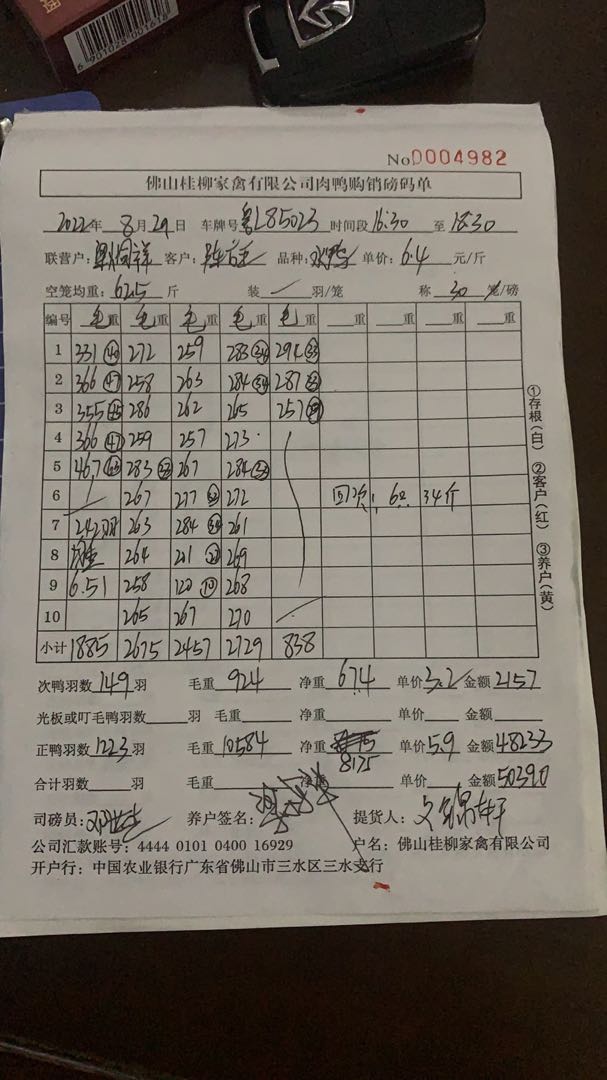 6 901028 001618
No 0004982
佛山桂柳家禽有限公司肉鸭购销磅码单
2022年 8月29日 车牌号 粤L85023 时间段 16:30 至 18:30
联营户: 客户: 品种: 水鸭 单价: 6.4 元/斤
空笼均重: 62.5 斤 装 / 羽/笼 称 30 笼/磅
编号 毛重 毛重 毛重 毛重 毛重 重 重 重
1 331 272 259 283 294 33
2 366 47 258 263 284 34 287
3 355 45 286 262 265 257
4 366 47 259 257 273
5 467 283 267 284
6 267 277 272 回次: 6只 34斤
7 242羽 263 284 261
8 均重 264 211 269
9 6.51 258 120 10 268
10 265 267 270
小计 1885 2675 2457 2729 838
次鸭羽数 149 羽 毛重 924 净重 674 单价 3.2 金额 2157
光板或叮毛鸭羽数 羽 毛重 净重 单价 金额
正鸭羽数 1223 羽 毛重 10584 净重 8175 单价 5.9 金额 48233
合计羽数 羽 毛重 净重 单价 金额 50390
司磅员: 养户签名: 提货人:
公司汇款账号: 4444 0101 0400 16929 户名: 佛山桂柳家禽有限公司
开户行: 中国农业银行广东省佛山市三水区三水支行
①存根(白) ②客户(红) ③养户(黄)